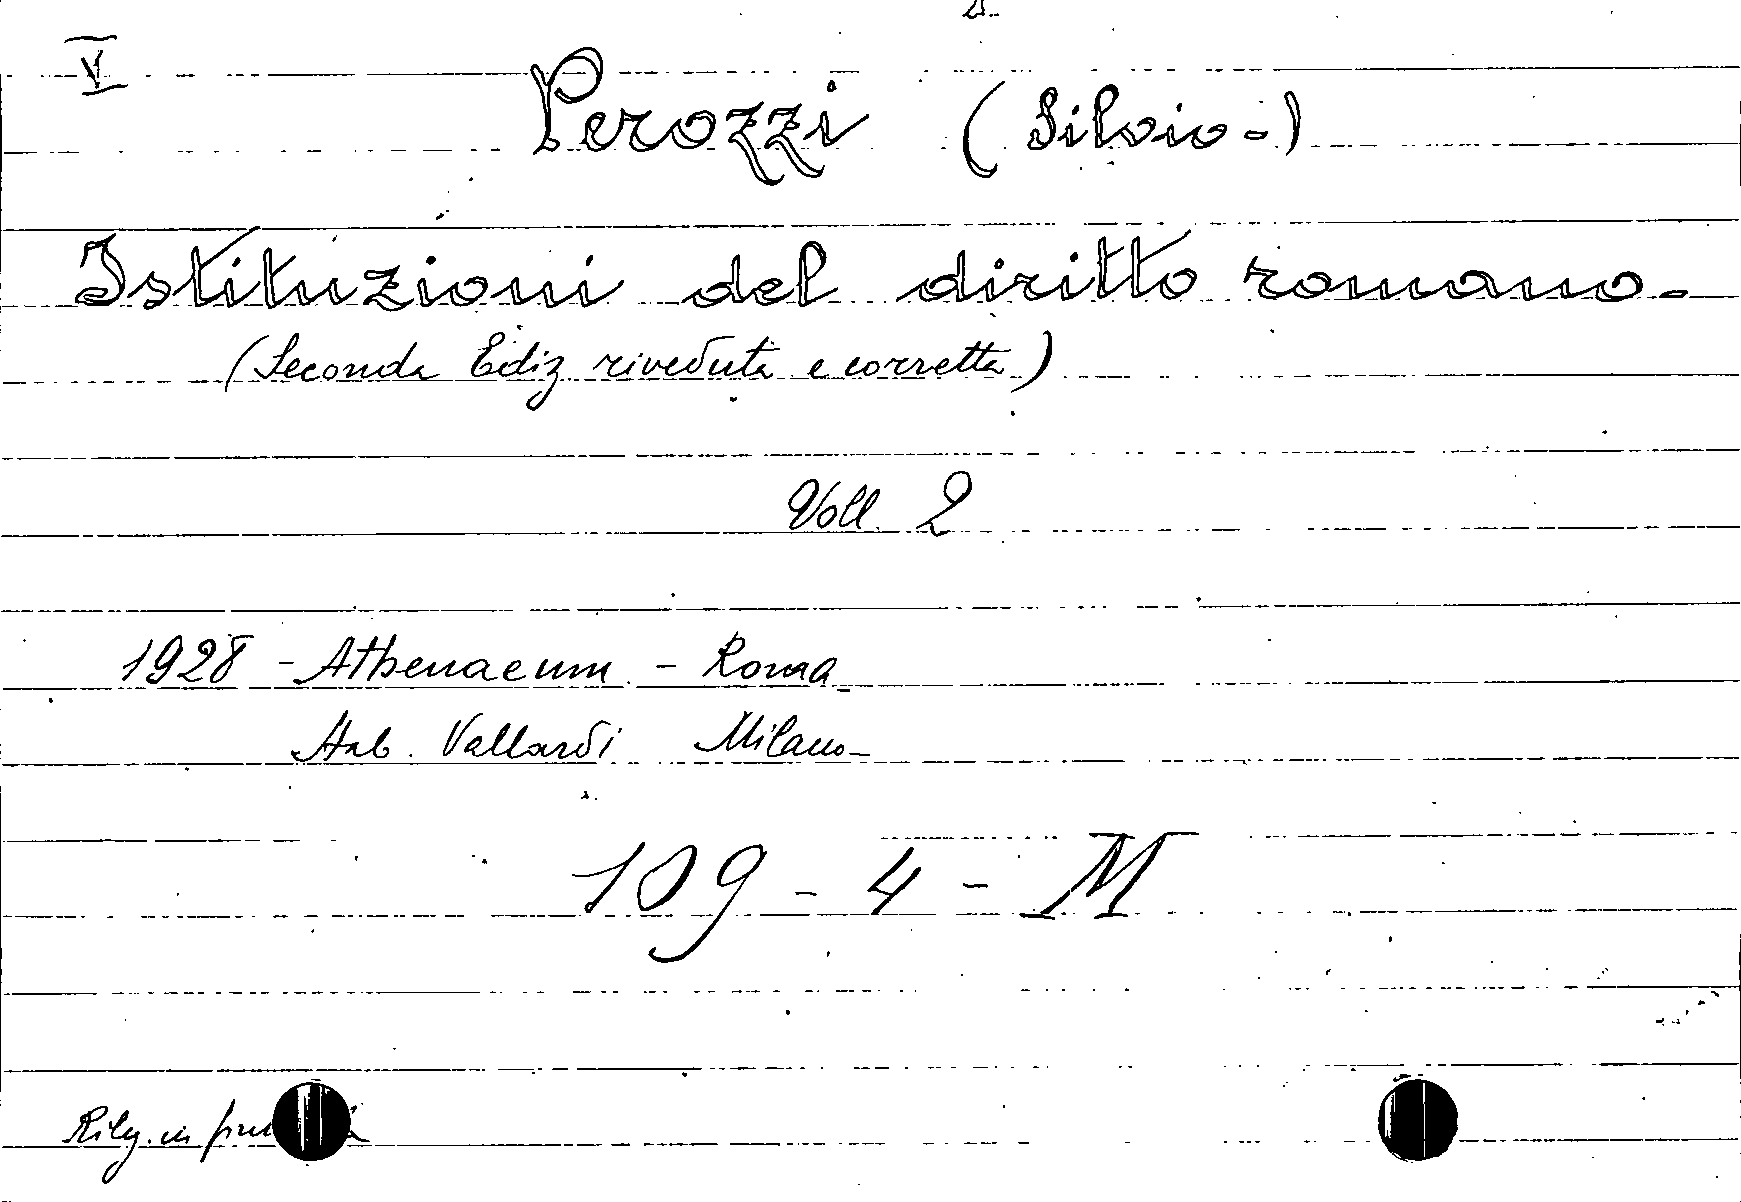 V
Perozzi (Silvio-)
Istituzioni del diritto romano.-
(Seconda Ediz riveduta e corretta)
Voll. 2
1928 - Athenaeum - Roma
Stab. Vallardi Milano-
109 - 4 - M
Rileg. in